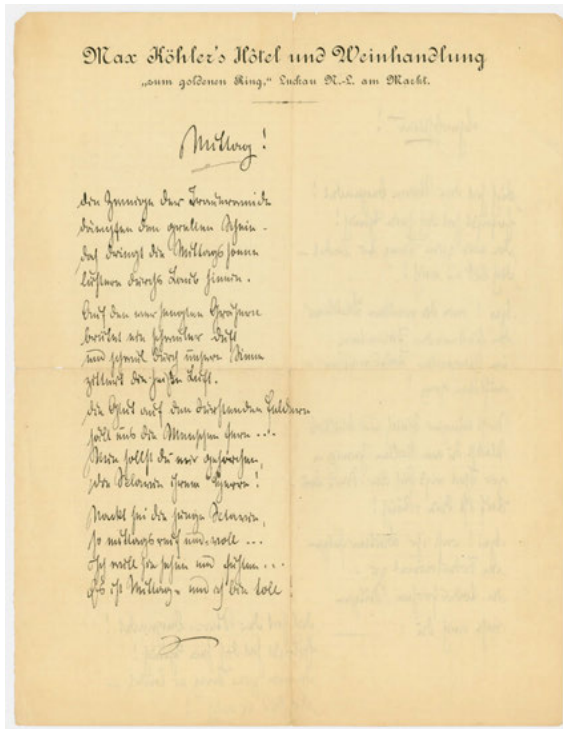 Max Köhler's Hôtel und Weinhandlung
„zum goldenen Ring," Luckau N.-L. am Markt.
Mittag!
Die Zweige der Trauerweide
dämpfen den grellen Schein –
doch dringt die Mittagssonne
lüstern durchs Laub hinein.
Auf den versengten Gräsern
brütet ein schwüler Duft
und schwül durch unsere Sinne
zittert die heiße Luft.
Die Glut auf den dürstenden Feldern
hält uns die Menschen fern ...
Nun sollst du mir gehorchen,
die Sklavin ihrem Herrn!
Nackt sei die junge Sclavin,
so mittagsreif und -voll ...
Ich will sie sehen und fühlen ...
Es ist Mittag – und ich bin toll!